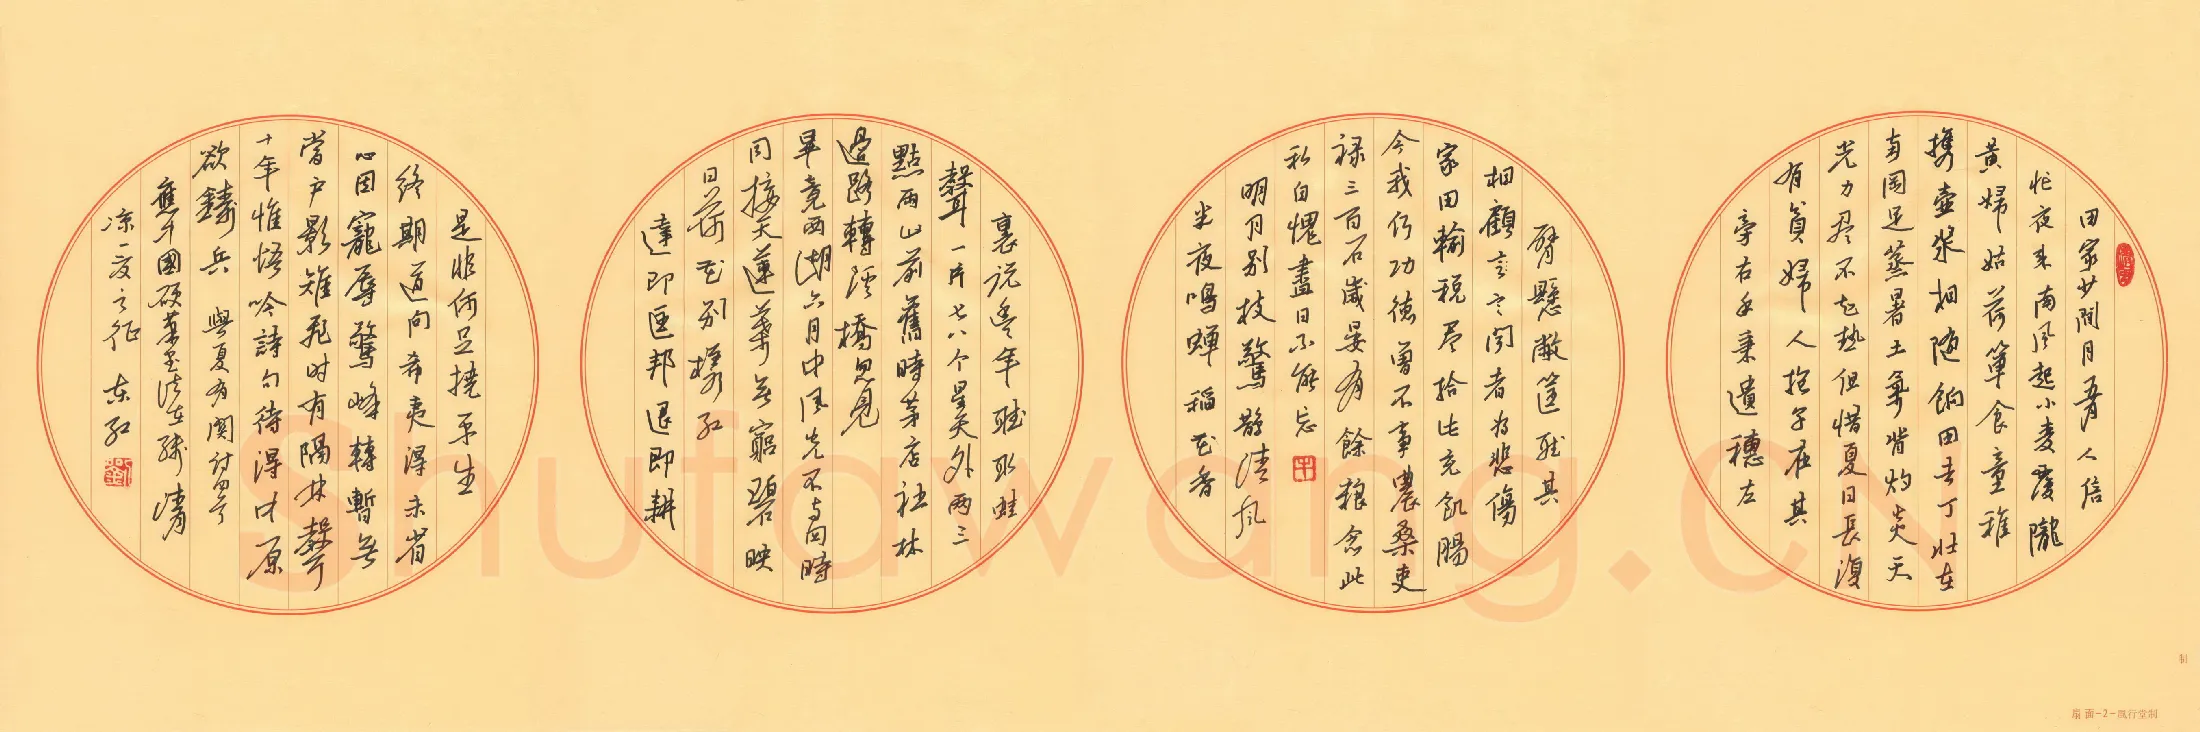 田家少閒月五月人倍
忙夜来南風起小麦覆隴
黄婦姑荷箪食童稚
携壺漿相随餉田去丁壮在
南岡足蒸暑土氣背灼炎天
光力尽不知熱但惜夏日長復
有貧婦人抱子在其
旁右手秉遺穗左
臂懸敝筐聴其
相顧言聞者為悲傷
家田輸税尽拾此充飢腸
今我何功德曾不事農桑吏
禄三百石歲晏有餘糧念此
私自愧盡日不能忘
明月别枝驚鹊清风
半夜鳴蝉稲花香
裏说豐年聴取蛙
聲一片七八个星天外两三
點雨山前舊時茅店社林
邊路轉溪橋忽見
畢竟西湖六月中风光不与四時
同接天蓮葉無窮碧映
日荷花别様红
達即匡邦退即耕
是非何足撓平生
终期道向希夷得未省
心因寵辱驚峰轉暫無
當户影雉飛时有隔林聲
十年惟悟吟詩句待得中原
欲鋳兵 與夏有関詩四首
應牙國硕筆
凉一夏之征 东红
shufawang.cn
扇面-2-風行堂制